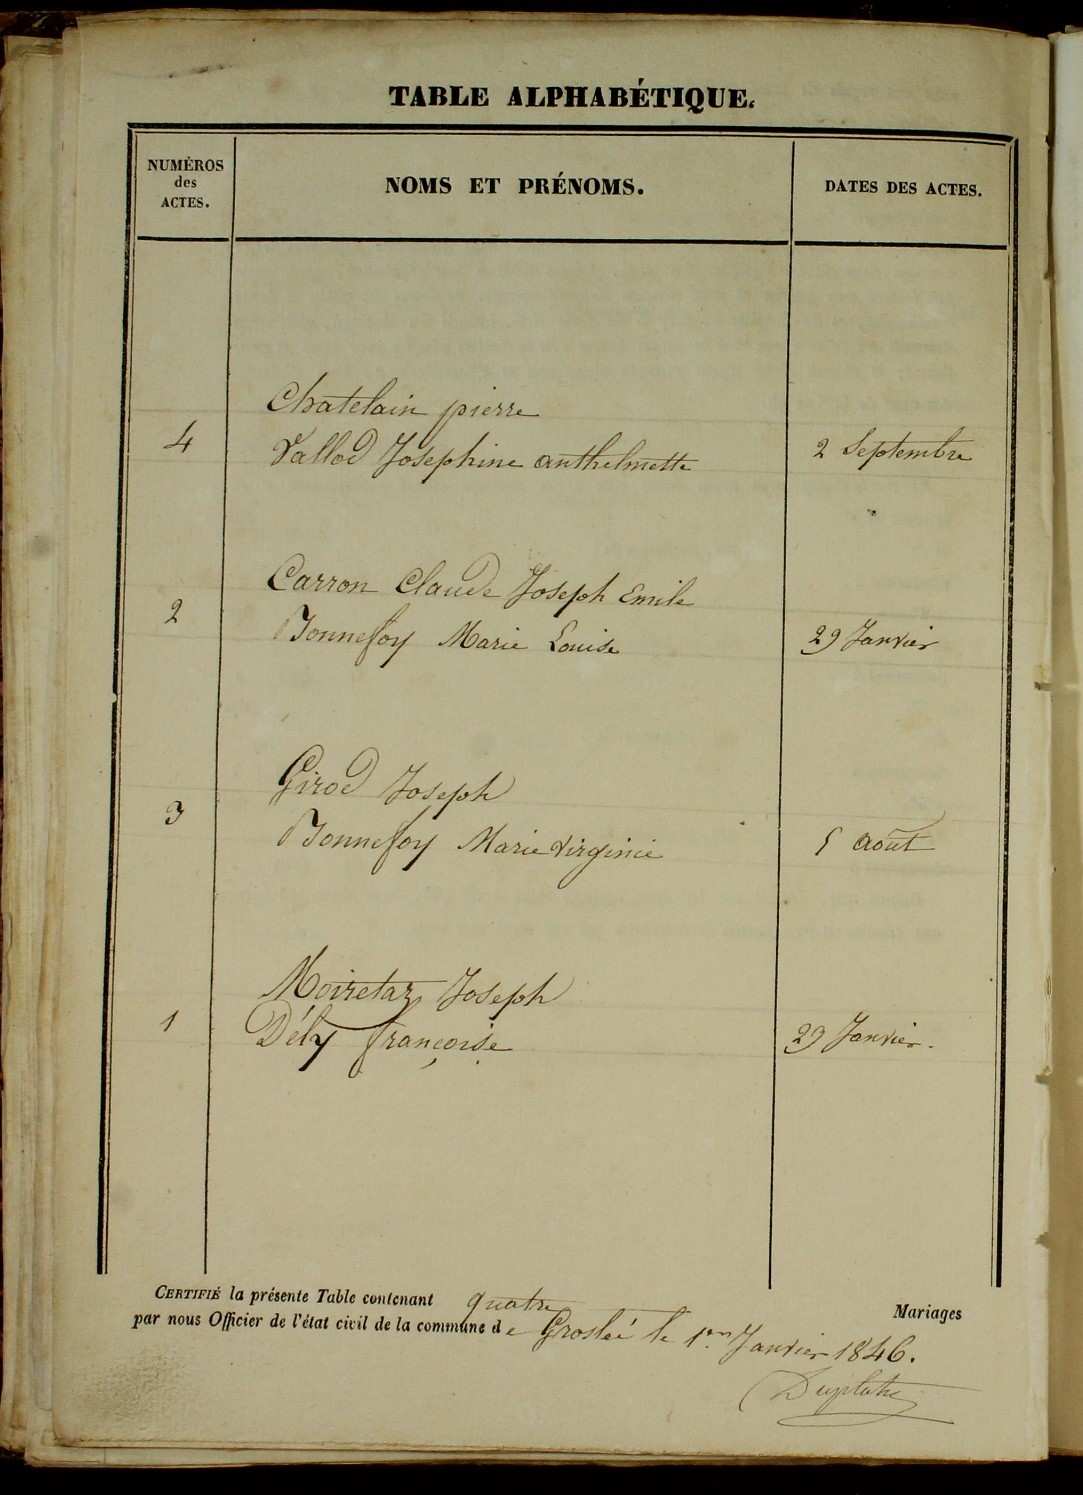 TABLE ALPHABÉTIQUE.
NUMÉROS des ACTES.
NOMS ET PRÉNOMS.
DATES DES ACTES.
Chatelain pierre
4 Vallod Josephine anthelmette 2 Septembre
Carron Claude Joseph Emile
2 Bonnefoy Marie Louise 29 Janvier
Girod Joseph
3 Bonnefoy Marie virginie 5 août
Moiretaz Joseph
1 Dély françoise 29 Janvier.
CERTIFIÉ la présente Table contenant quatre Mariages
par nous Officier de l'état civil de la commune de Groslée le 1er Janvier 1846.